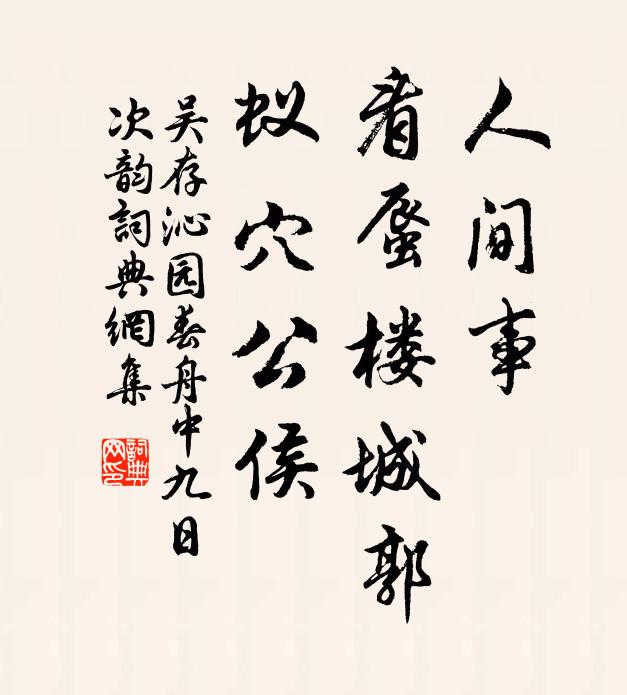 人间事
看蜃楼城郭
蚁穴公侯
吴存沁园春舟中九日
次韵詞典網集
詞典
网印